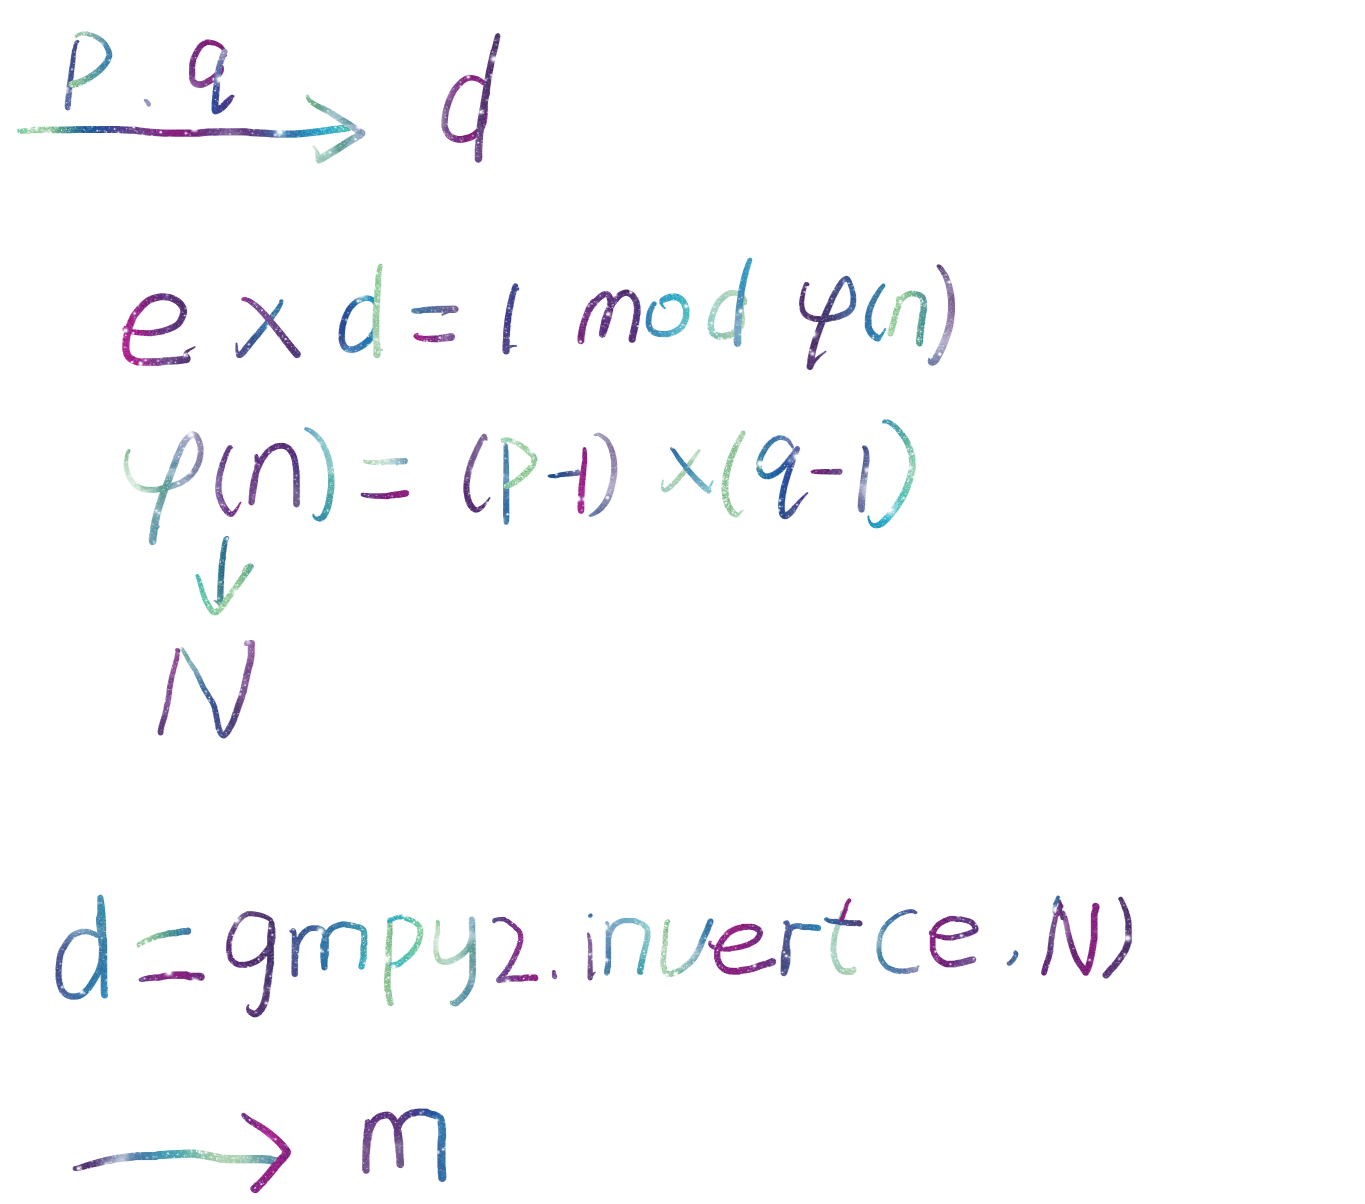 p . q → d
e x d = 1 mod φ(n)
φ(n) = (p-1) x (q-1)
↓
N
d = gmpy2.invert(e , N)
→ m